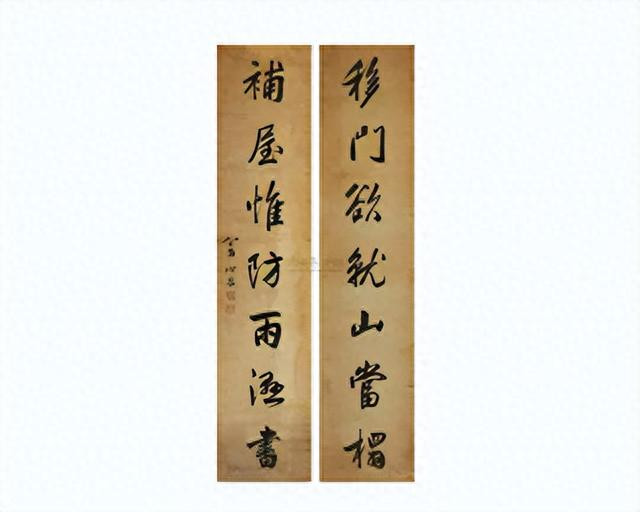 移門欲就山當榻
補屋惟防雨溼書